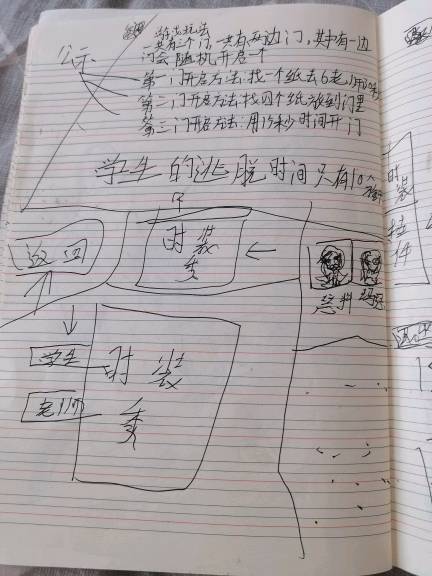 游戏玩法
公示
一共有三个门,一共有两边门,其中有一边
门会随机开启一个
第一门开启方法:找一个纸去6老师
第二门开启方法:找四个纸放到门里
第三门开启方法:用15秒时间开门
学生的逃脱时间只有10个
返回
时装
秀
←
时装
挂件
学生
老师
时装
秀